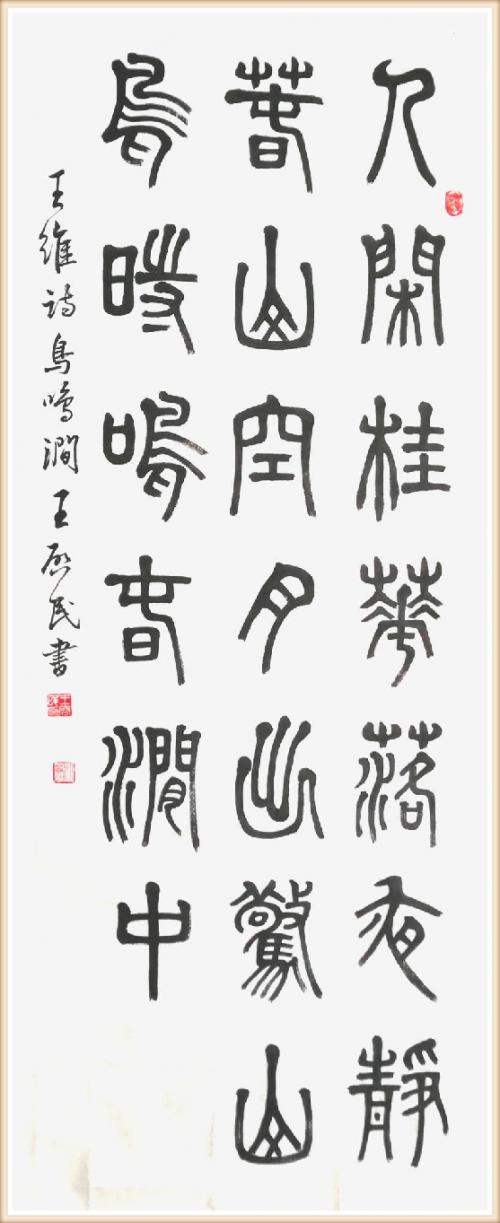 人閑桂華落夜靜
春山空月出驚山
鳥時鳴春澗中
王維詩鳥鳴澗王啟民書